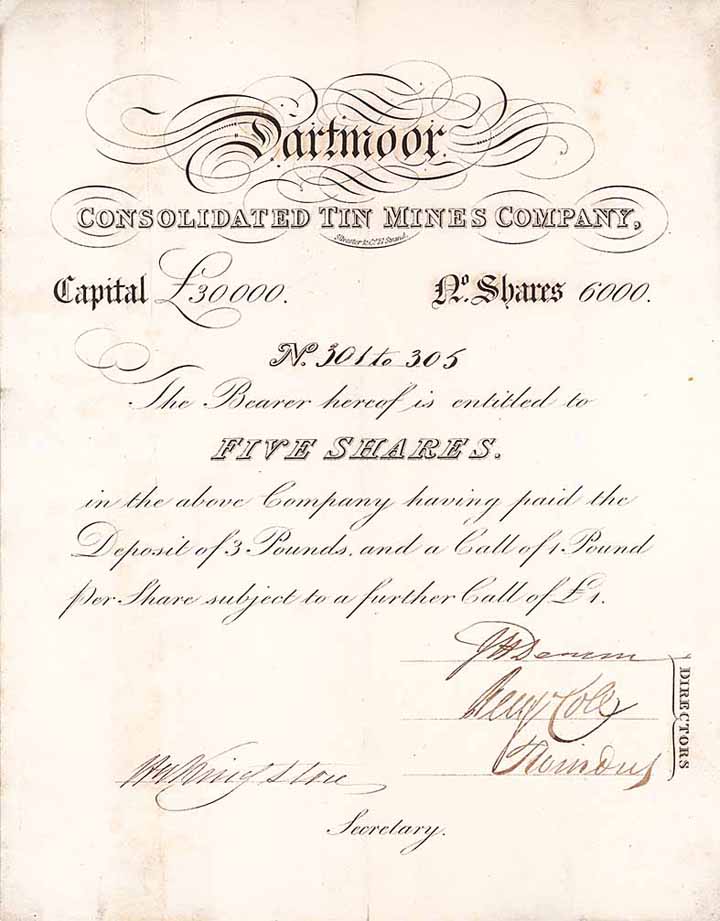 Dartmoor
CONSOLIDATED TIN MINES COMPANY,
Capital £30000. No. Shares 6000.
No. 301 to 305
The Bearer hereof is entitled to
FIVE SHARES.
in the above Company having paid the
Deposit of 3 Pounds, and a Call of 1 Pound
per Share subject to a further Call of £1.
Benj Cole
DIRECTORS
Kingston
Secretary.